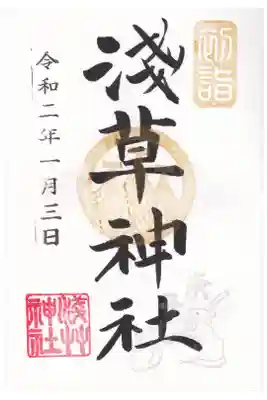 初詣
淺草神社
令和二年一月三日
淺草
神社